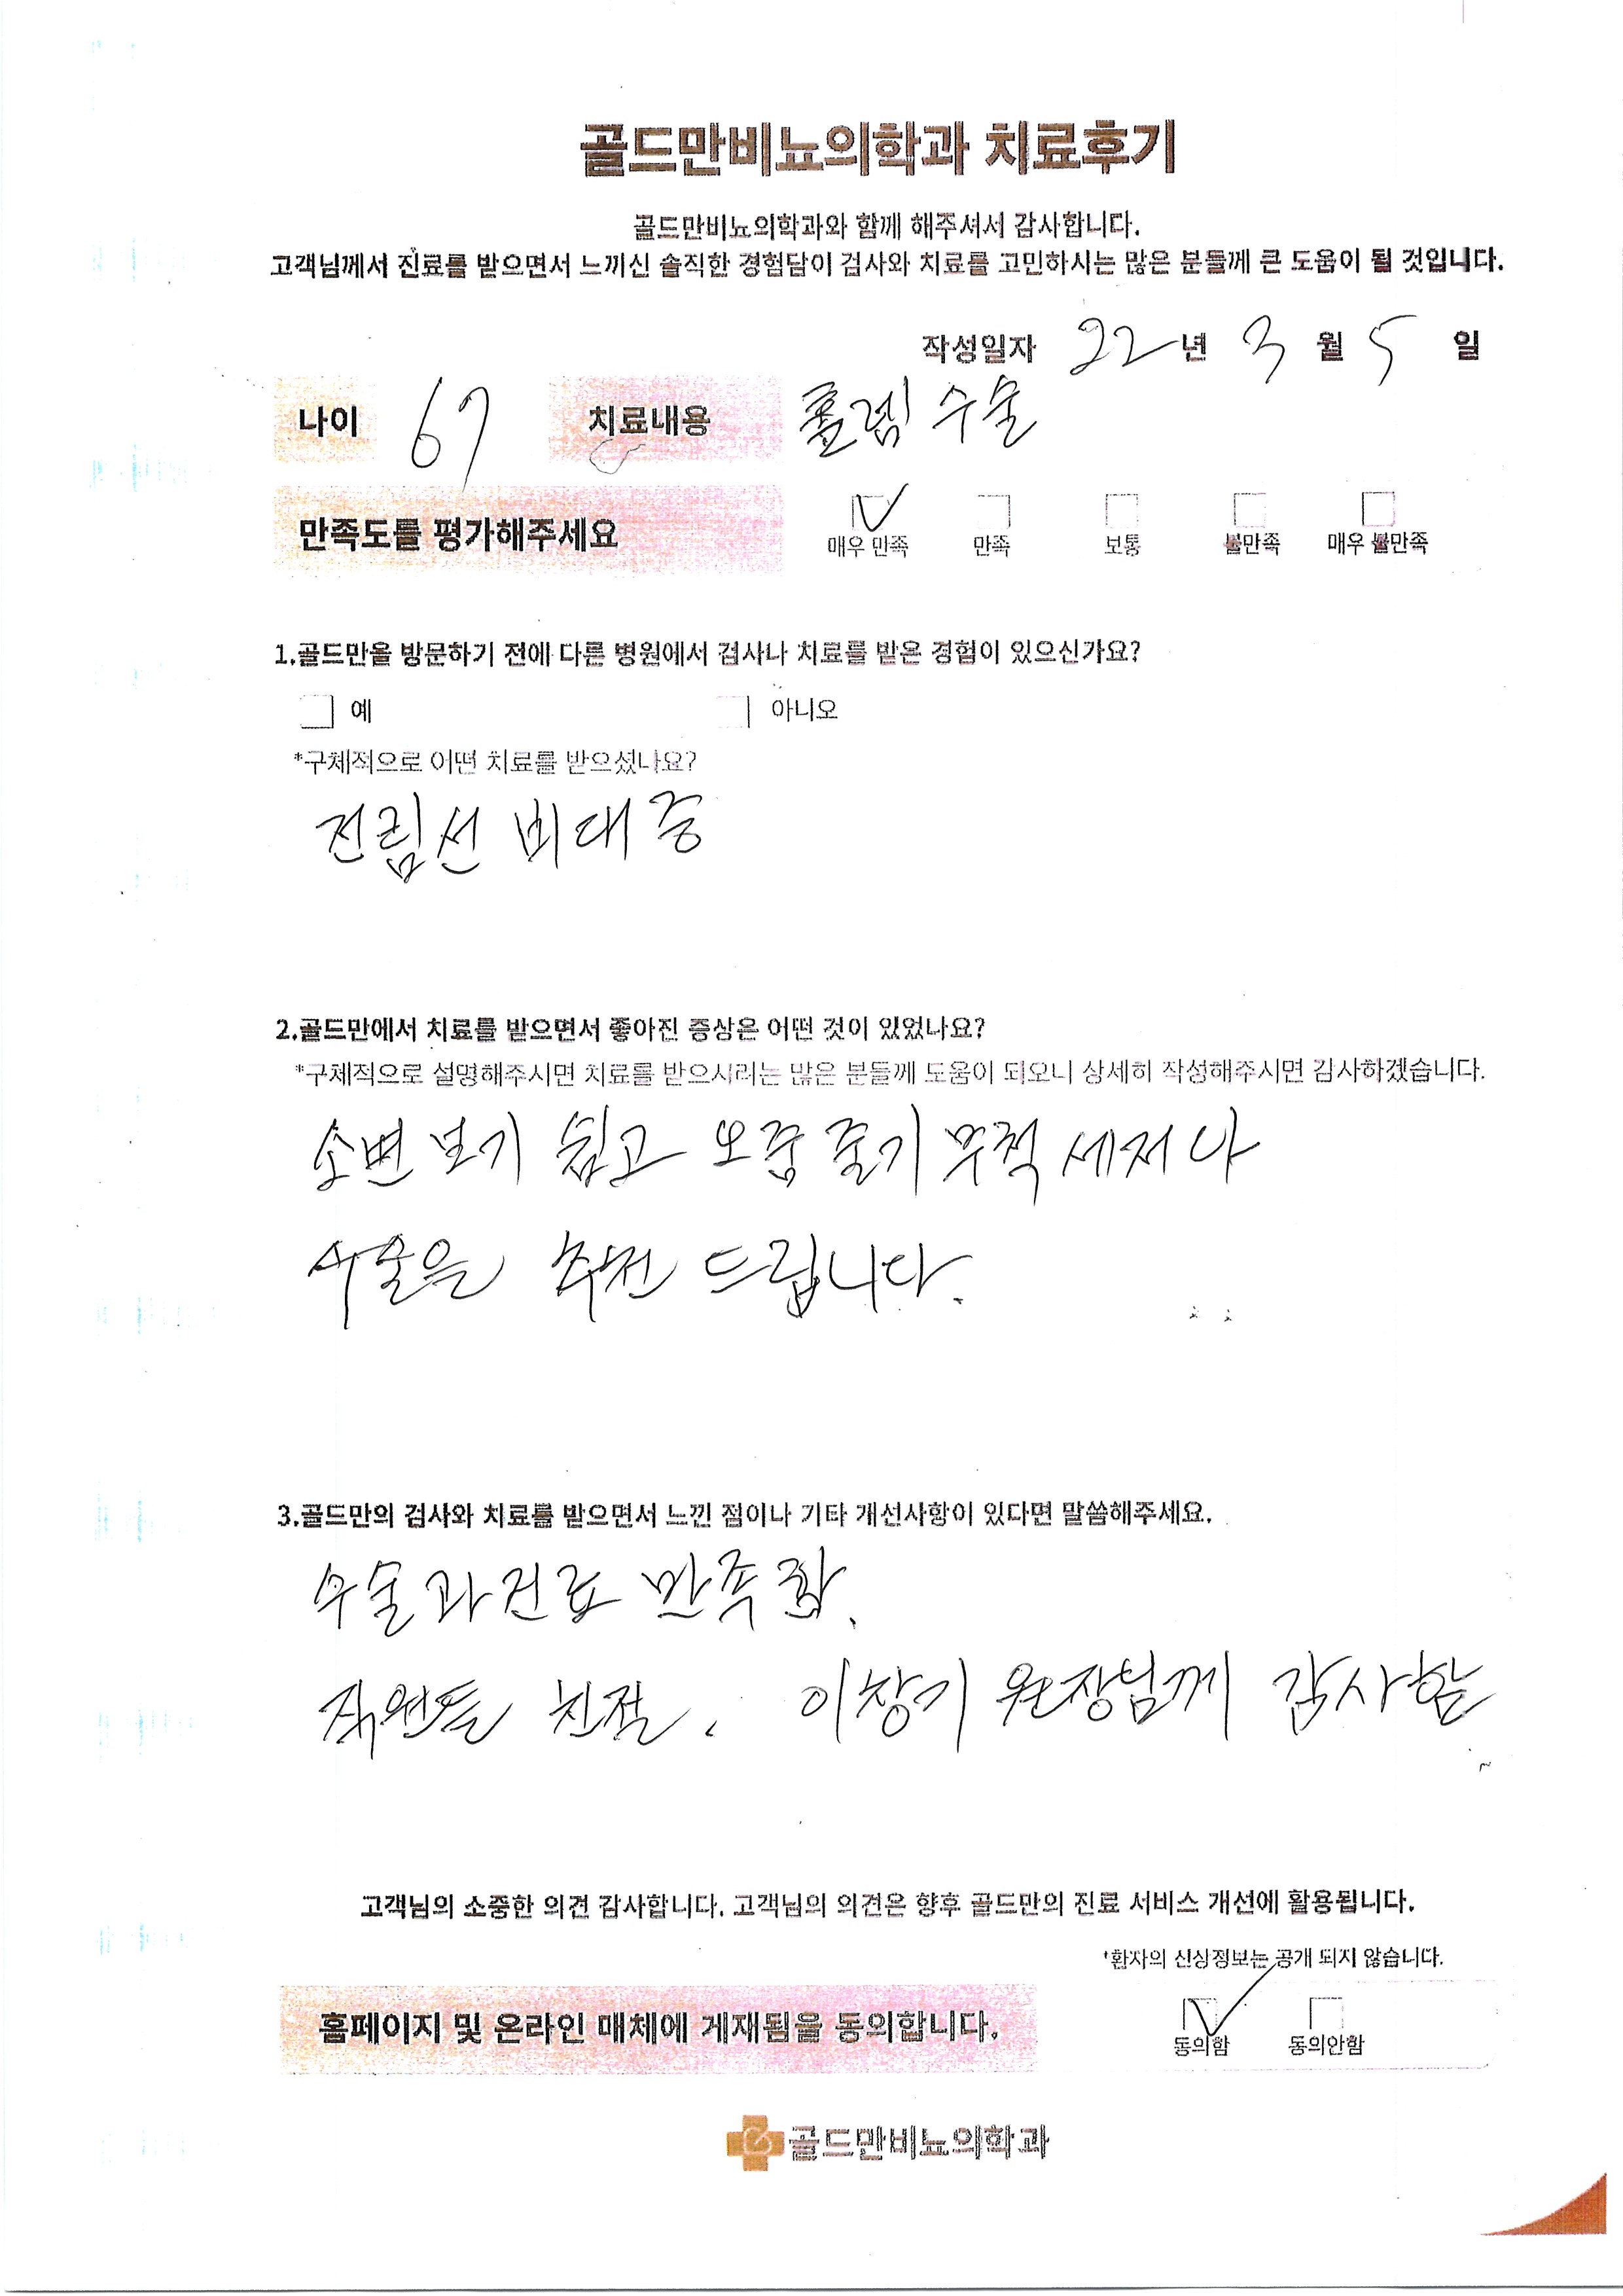 골드만비뇨의학과 치료후기
골드만비뇨의학과와 함께 해주셔서 감사합니다.
고객님께서 진료를 받으면서 느끼신 솔직한 경험담이 검사와 치료를 고민하시는 많은 분들께 큰 도움이 될 것입니다.
작성일자 22년 3월 5일
나이 67 치료내용 홀렙 수술
만족도를 평가해주세요 매우 만족 만족 보통 불만족 매우 불만족
1.골드만을 방문하기 전에 다른 병원에서 검사나 치료를 받은 경험이 있으신가요?
예 아니오
*구체적으로 어떤 치료를 받으셨나요?
전립선 비대증
2.골드만에서 치료를 받으면서 좋아진 증상은 어떤 것이 있었나요?
*구체적으로 설명해주시면 치료를 받으시려는 많은 분들께 도움이 되오니 상세히 작성해주시면 감사하겠습니다.
소변 보기 쉽고 오줌 줄기 무척 세저 나
수술은 추천 드립니다.
3.골드만의 검사와 치료를 받으면서 느낀 점이나 기타 개선사항이 있다면 말씀해주세요.
수술과 진료 만족함.
직원들 친절. 이창기 원장님께 감사함
고객님의 소중한 의견 감사합니다. 고객님의 의견은 향후 골드만의 진료 서비스 개선에 활용됩니다.
*환자의 신상정보는 공개 되지 않습니다.
홈페이지 및 온라인 매체에 게재됨을 동의합니다. 동의함 동의안함
골드만비뇨의학과